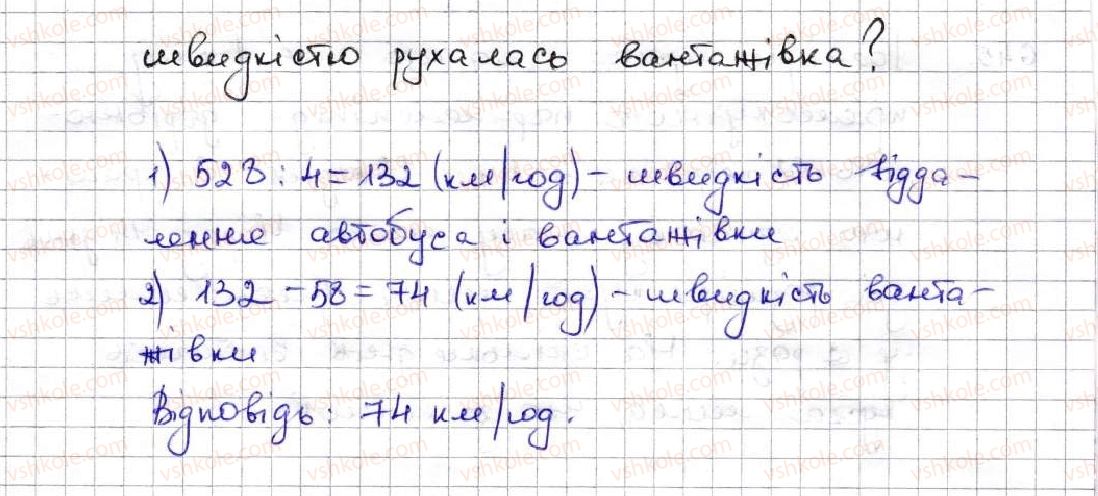 швидкістю рухалась вантажівка?
1) 528 : 4 = 132 (км/год) – швидкість відда-
лення автобуса і вантажівки
2) 132 – 58 = 74 (км/год) – швидкість ванта-
жівки
Відповідь: 74 км/год.